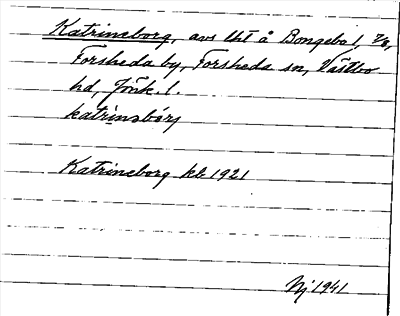 Katrineborg, avs lht å Bongebo 1, 7/8,
Forsheda by, Forsheda sn, Västbo
hd, Jönk. l.
katrinsbórj
Katrineborg kb 1921
Nj 1941